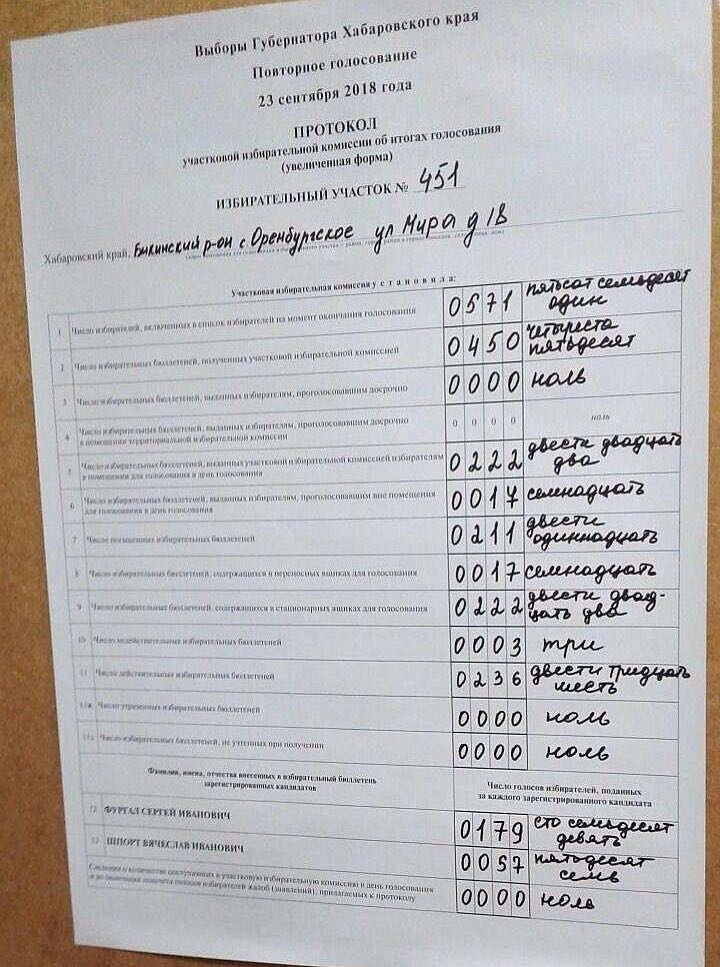 Выборы Губернатора Хабаровского края
Повторное голосование
23 сентября 2018 года
ПРОТОКОЛ
участковой избирательной комиссии об итогах голосования
(увеличенная форма)
ИЗБИРАТЕЛЬНЫЙ УЧАСТОК № 451
Хабаровский край, Бикинский р-он с. Оренбургское ул Мира д 18
Участковая избирательная комиссия у с т а н о в и л а:
1 Число избирателей, включенных в список избирателей на момент окончания голосования 0571 пятьсот семьдесят
один
2 Число избирательных бюллетеней, полученных участковой избирательной комиссией 0450 четыреста
пятьдесят
3 Число избирательных бюллетеней, выданных избирателям, проголосовавшим досрочно 0000 ноль
4 Число избирательных бюллетеней, выданных избирателям, проголосовавшим досрочно
в помещении территориальной избирательной комиссии 0 0 0 0 ноль
5 Число избирательных бюллетеней, выданных участковой избирательной комиссией избирателям
в помещении для голосования в день голосования 0222 двести двадцать
два
6 Число избирательных бюллетеней, выданных избирателям, проголосовавшим вне помещения
для голосования в день голосования 0017 семнадцать
7 Число погашенных избирательных бюллетеней 0211 двести
одиннадцать
8 Число избирательных бюллетеней, содержащихся в переносных ящиках для голосования 0017 семнадцать
9 Число избирательных бюллетеней, содержащихся в стационарных ящиках для голосования 0222 двести двад-
цать два
10 Число недействительных избирательных бюллетеней 0003 три
11 Число действительных избирательных бюллетеней 0236 двести тридцать
шесть
11ж Число утраченных избирательных бюллетеней 0000 ноль
11з Число избирательных бюллетеней, не учтенных при получении 0000 ноль
Фамилии, имена, отчества внесенных в избирательный бюллетень
зарегистрированных кандидатов
Число голосов избирателей, поданных
за каждого зарегистрированного кандидата
12 ФУРГАЛ СЕРГЕЙ ИВАНОВИЧ 0179 сто семьдесят
девять
13 ШПОРТ ВЯЧЕСЛАВ ИВАНОВИЧ 0057 пятьдесят
семь
Сведения о количестве поступивших в участковую избирательную комиссию в день голосования
и до окончания подсчета голосов избирателей жалоб (заявлений), прилагаемых к протоколу 0000 ноль